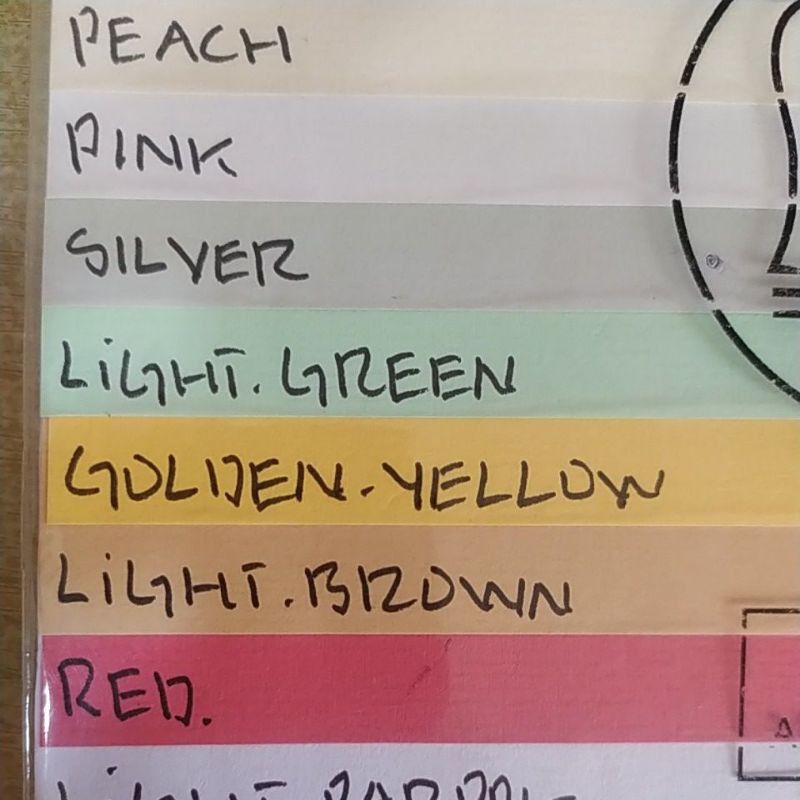 PEACH
PINK
SILVER
LiGHT. GREEN
GOLDEN-YELLOW
LiGHT. BROWN
RED.
LiGHT